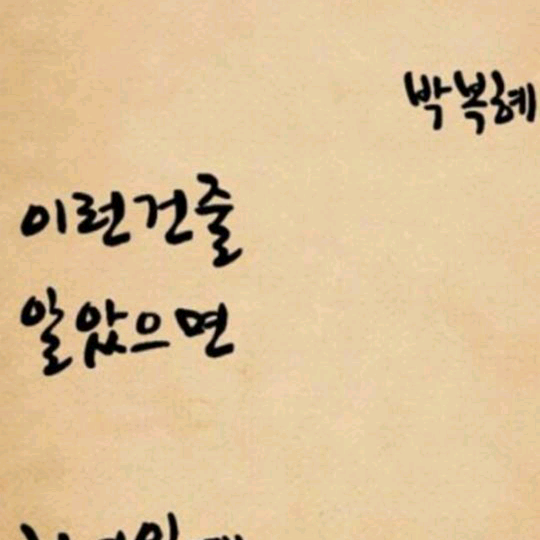 박복혜
이런건줄
알았으면